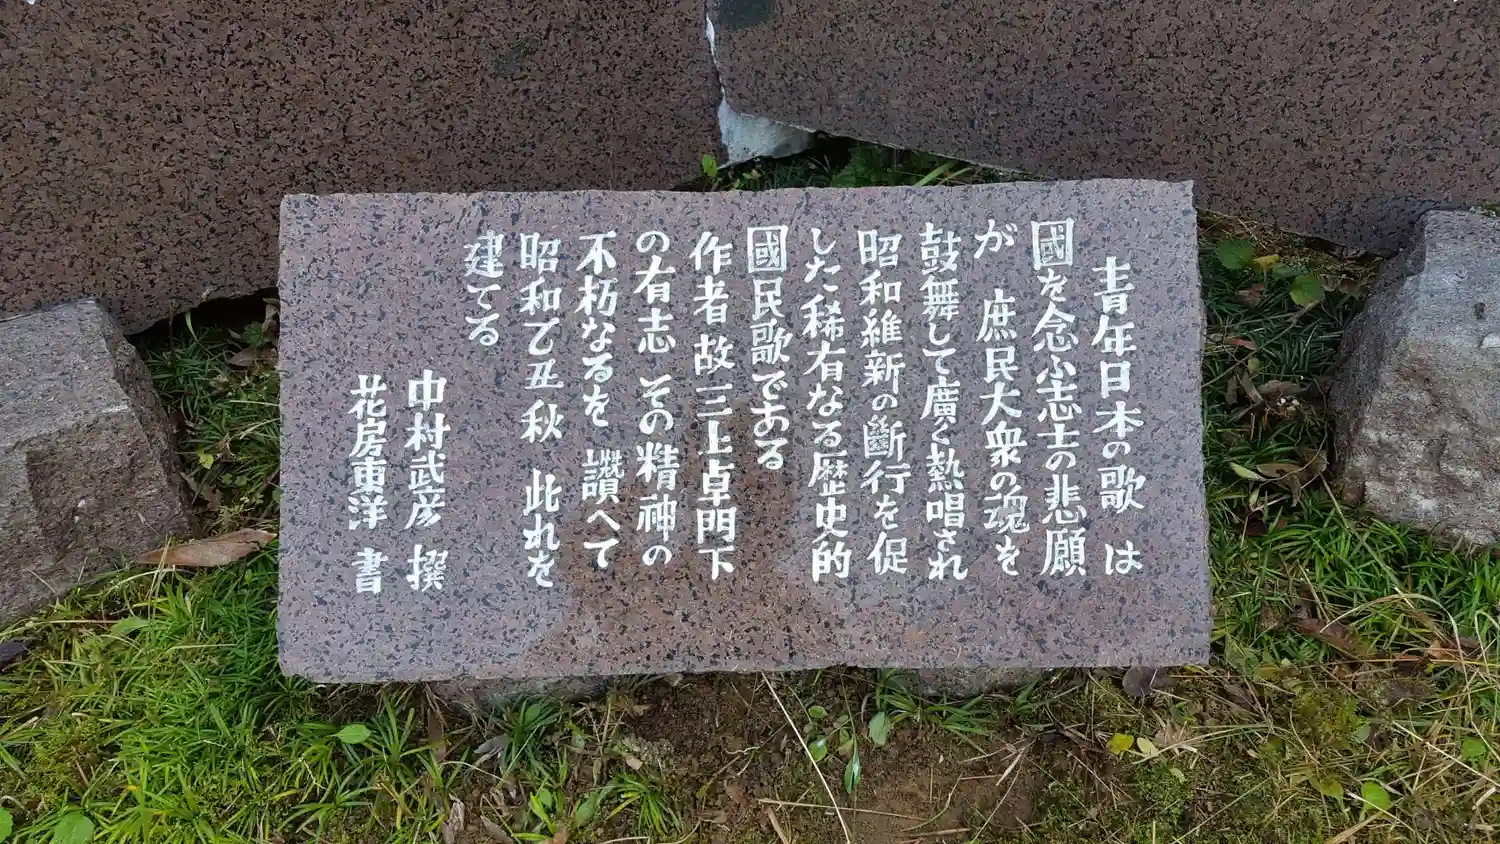 青年日本の歌 は
國を念ふ志士の悲願
が 庶民大衆の魂を
鼓舞して廣く熱唱され
昭和維新の斷行を促
した稀有なる歴史的
國民歌である
作者故三上卓門下
の有志 その精神の
不朽なるを 讃へて
昭和乙丑秋 此れを
建てる
中村武彦 撰
花房東洋 書